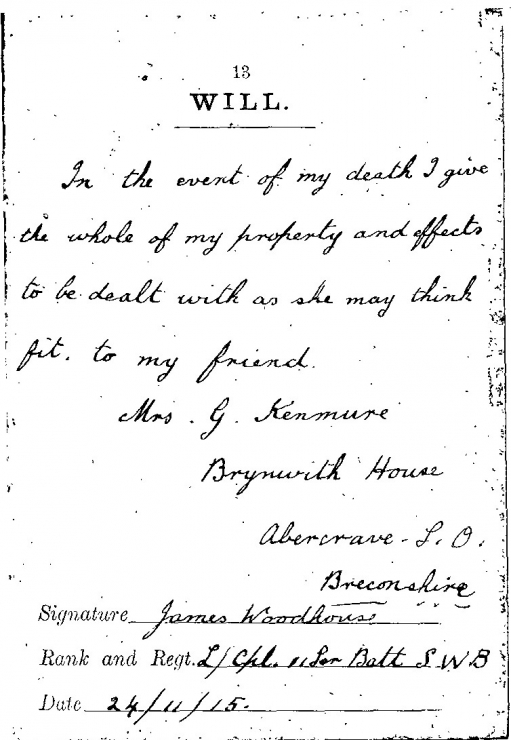 13
WILL.
In the event of my death I give
the whole of my property and effects
to be dealt with as she may think
fit. to my friend.
Mrs. G. Kenmure
Brynwith House
Abercrave - S. O.
Breconshire
Signature James Woodhouse
Rank and Regt. L/Cpl. 11 Ser Batt S W B
Date 24/11/15.